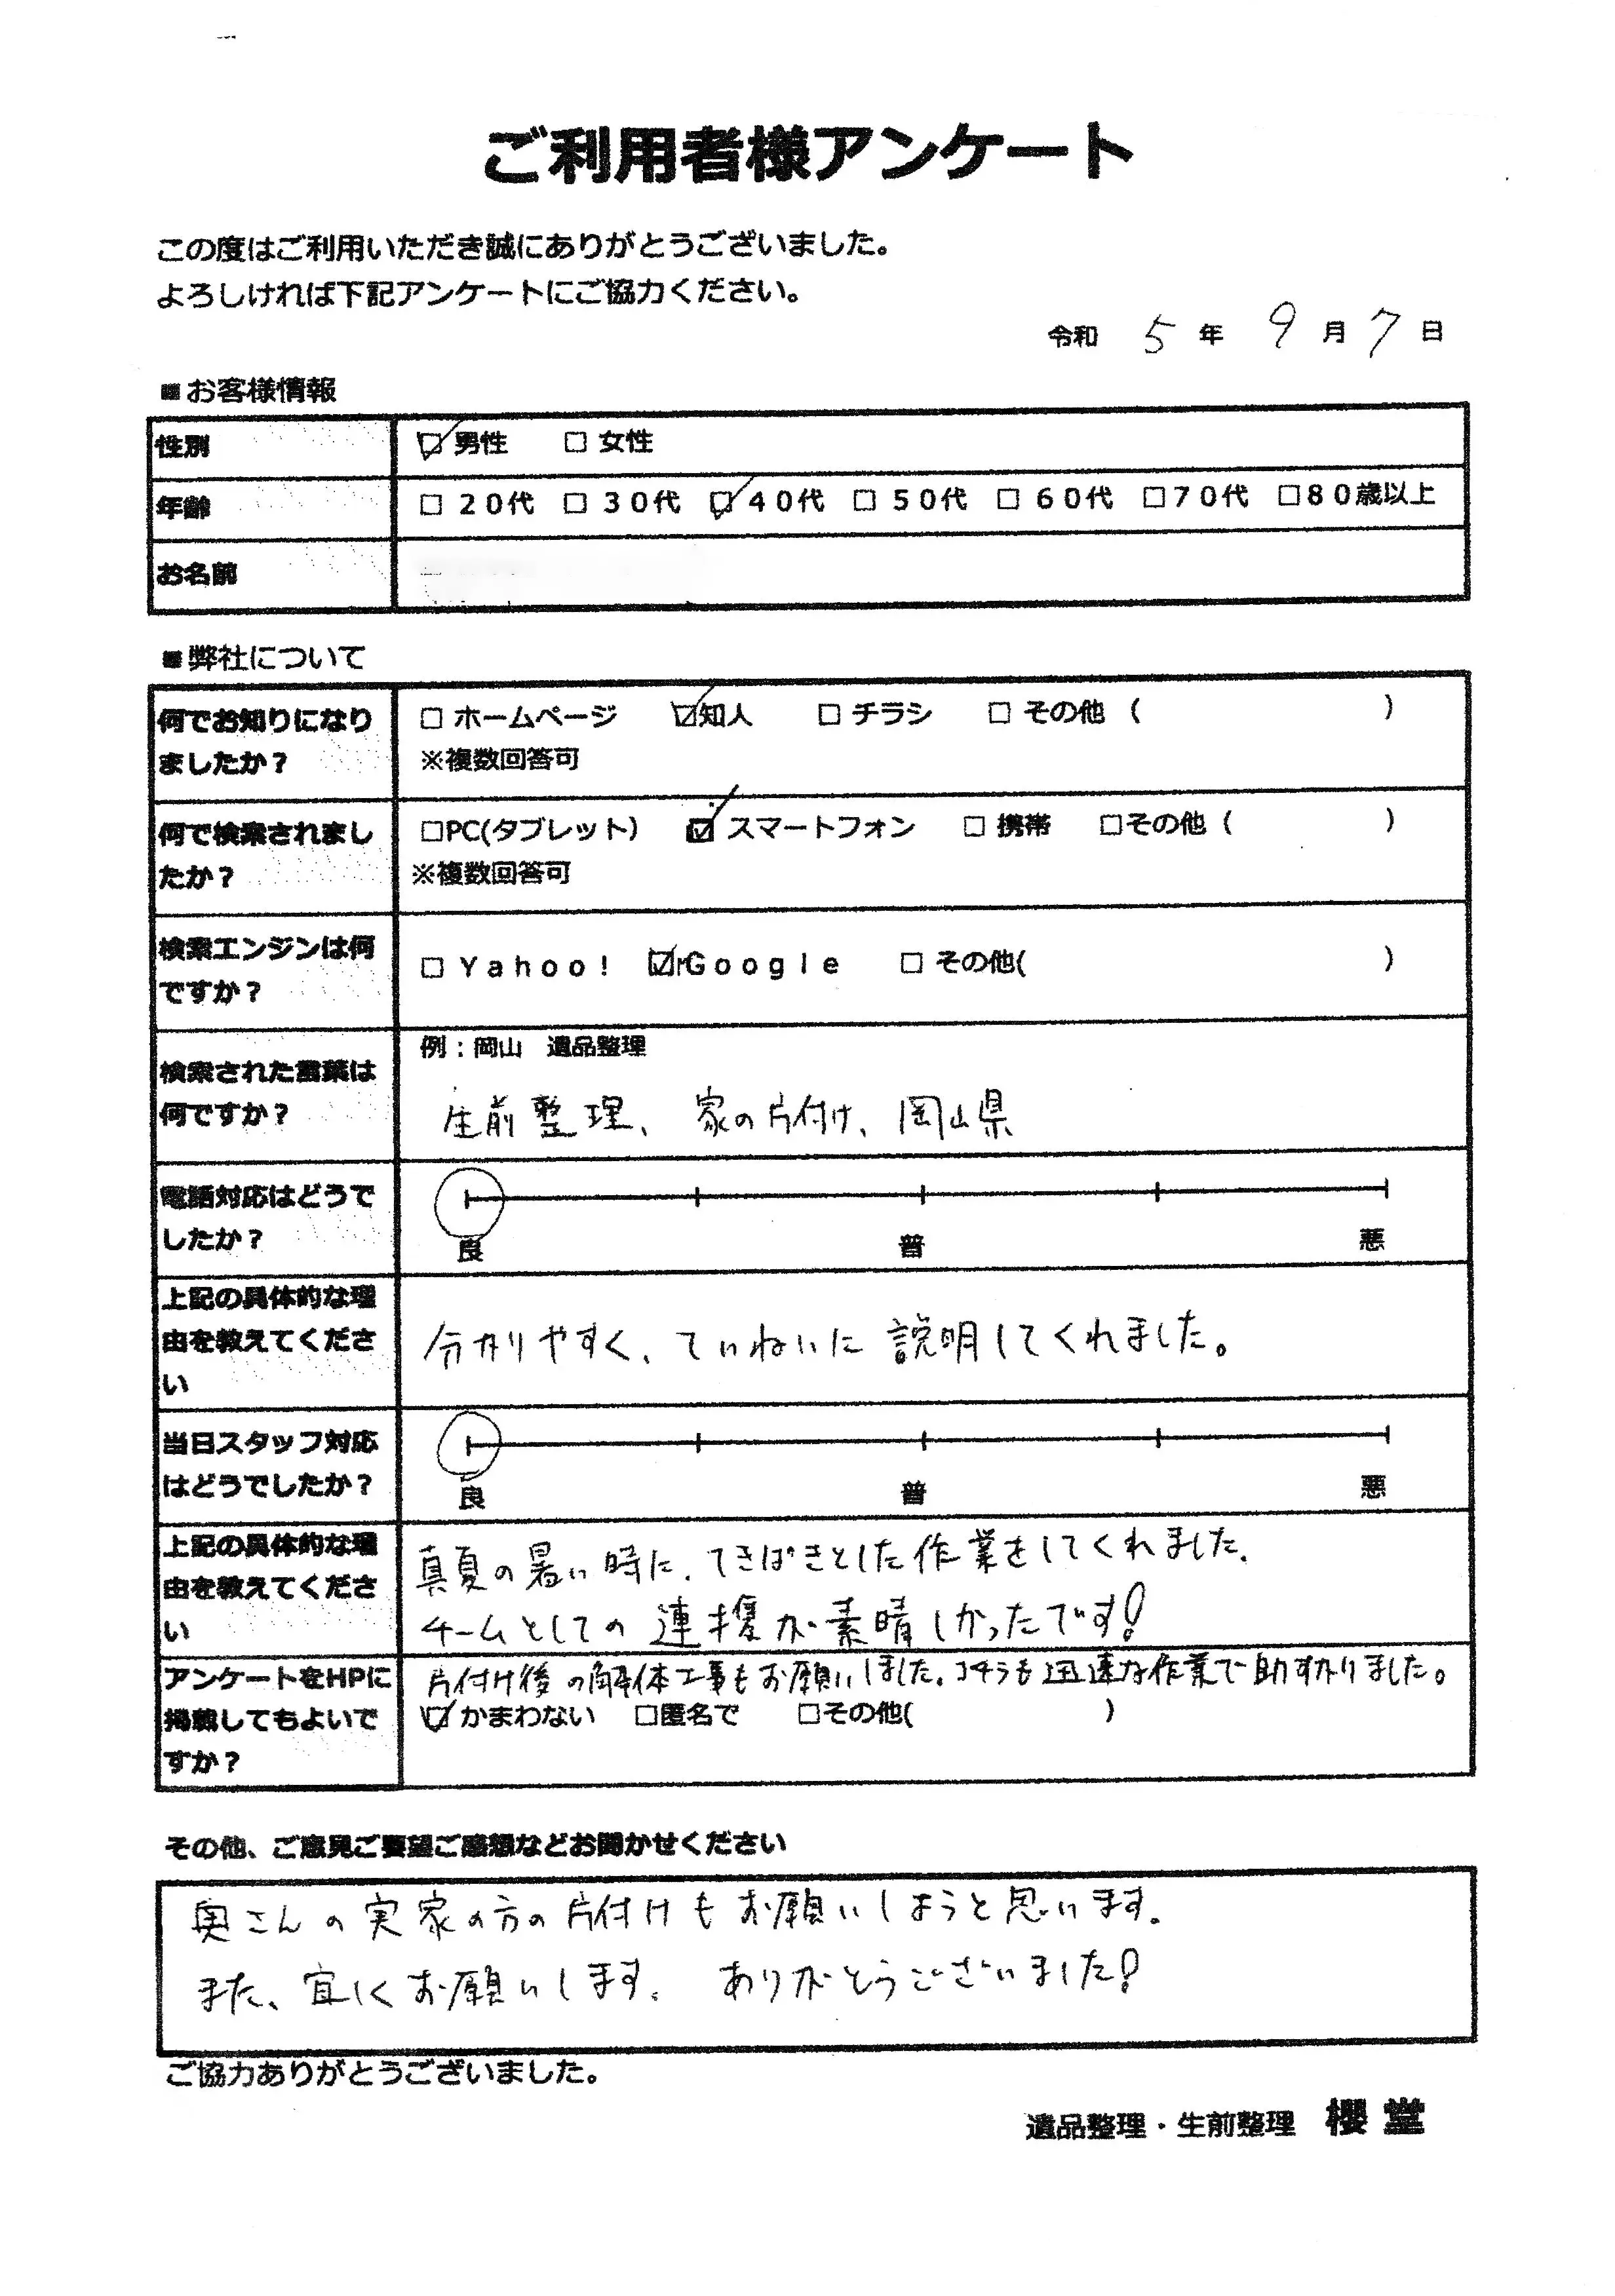 ご利用者様アンケート
この度はご利用いただき誠にありがとうございました。
よろしければ下記アンケートにご協力ください。
令和 5 年 9 月 7 日
■お客様情報
性別 ☑ 男性 □ 女性
年齢 □ 20代 □ 30代 ☑ 40代 □ 50代 □ 60代 □70代 □80歳以上
お名前
■弊社について
何でお知りになり
ましたか？
□ ホームページ ☑知人 □ チラシ □ その他（ ）
※複数回答可
何で検索されまし
たか？
□PC(タブレット） ☑ スマートフォン □ 携帯 □その他（ ）
※複数回答可
検索エンジンは何
ですか？
□ Yahoo! ☑Google □ その他( )
検索された言葉は
何ですか？
例：岡山 遺品整理
生前整理、家の片付け、岡山県
電話対応はどうで
したか？
良 普 悪
上記の具体的な理
由を教えてくださ
い
分かりやすく、ていねいに説明してくれました。
当日スタッフ対応
はどうでしたか？
良 普 悪
上記の具体的な理
由を教えてくださ
い
真夏の暑い時に、てきぱきとした作業をしてくれました。
チームとしての連携が素晴しかったです!
片付け後の解体工事もお願いしました。コチラも迅速な作業で助かりました。
アンケートをHPに
掲載してもよいで
すか？
☑ かまわない □匿名で □その他( )
その他、ご意見ご要望ご感想などお聞かせください
奥さんの実家の方の片付けもお願いしようと思います。
また、宜しくお願いします。 ありがとうございました!
ご協力ありがとうございました。
遺品整理・生前整理 櫻堂